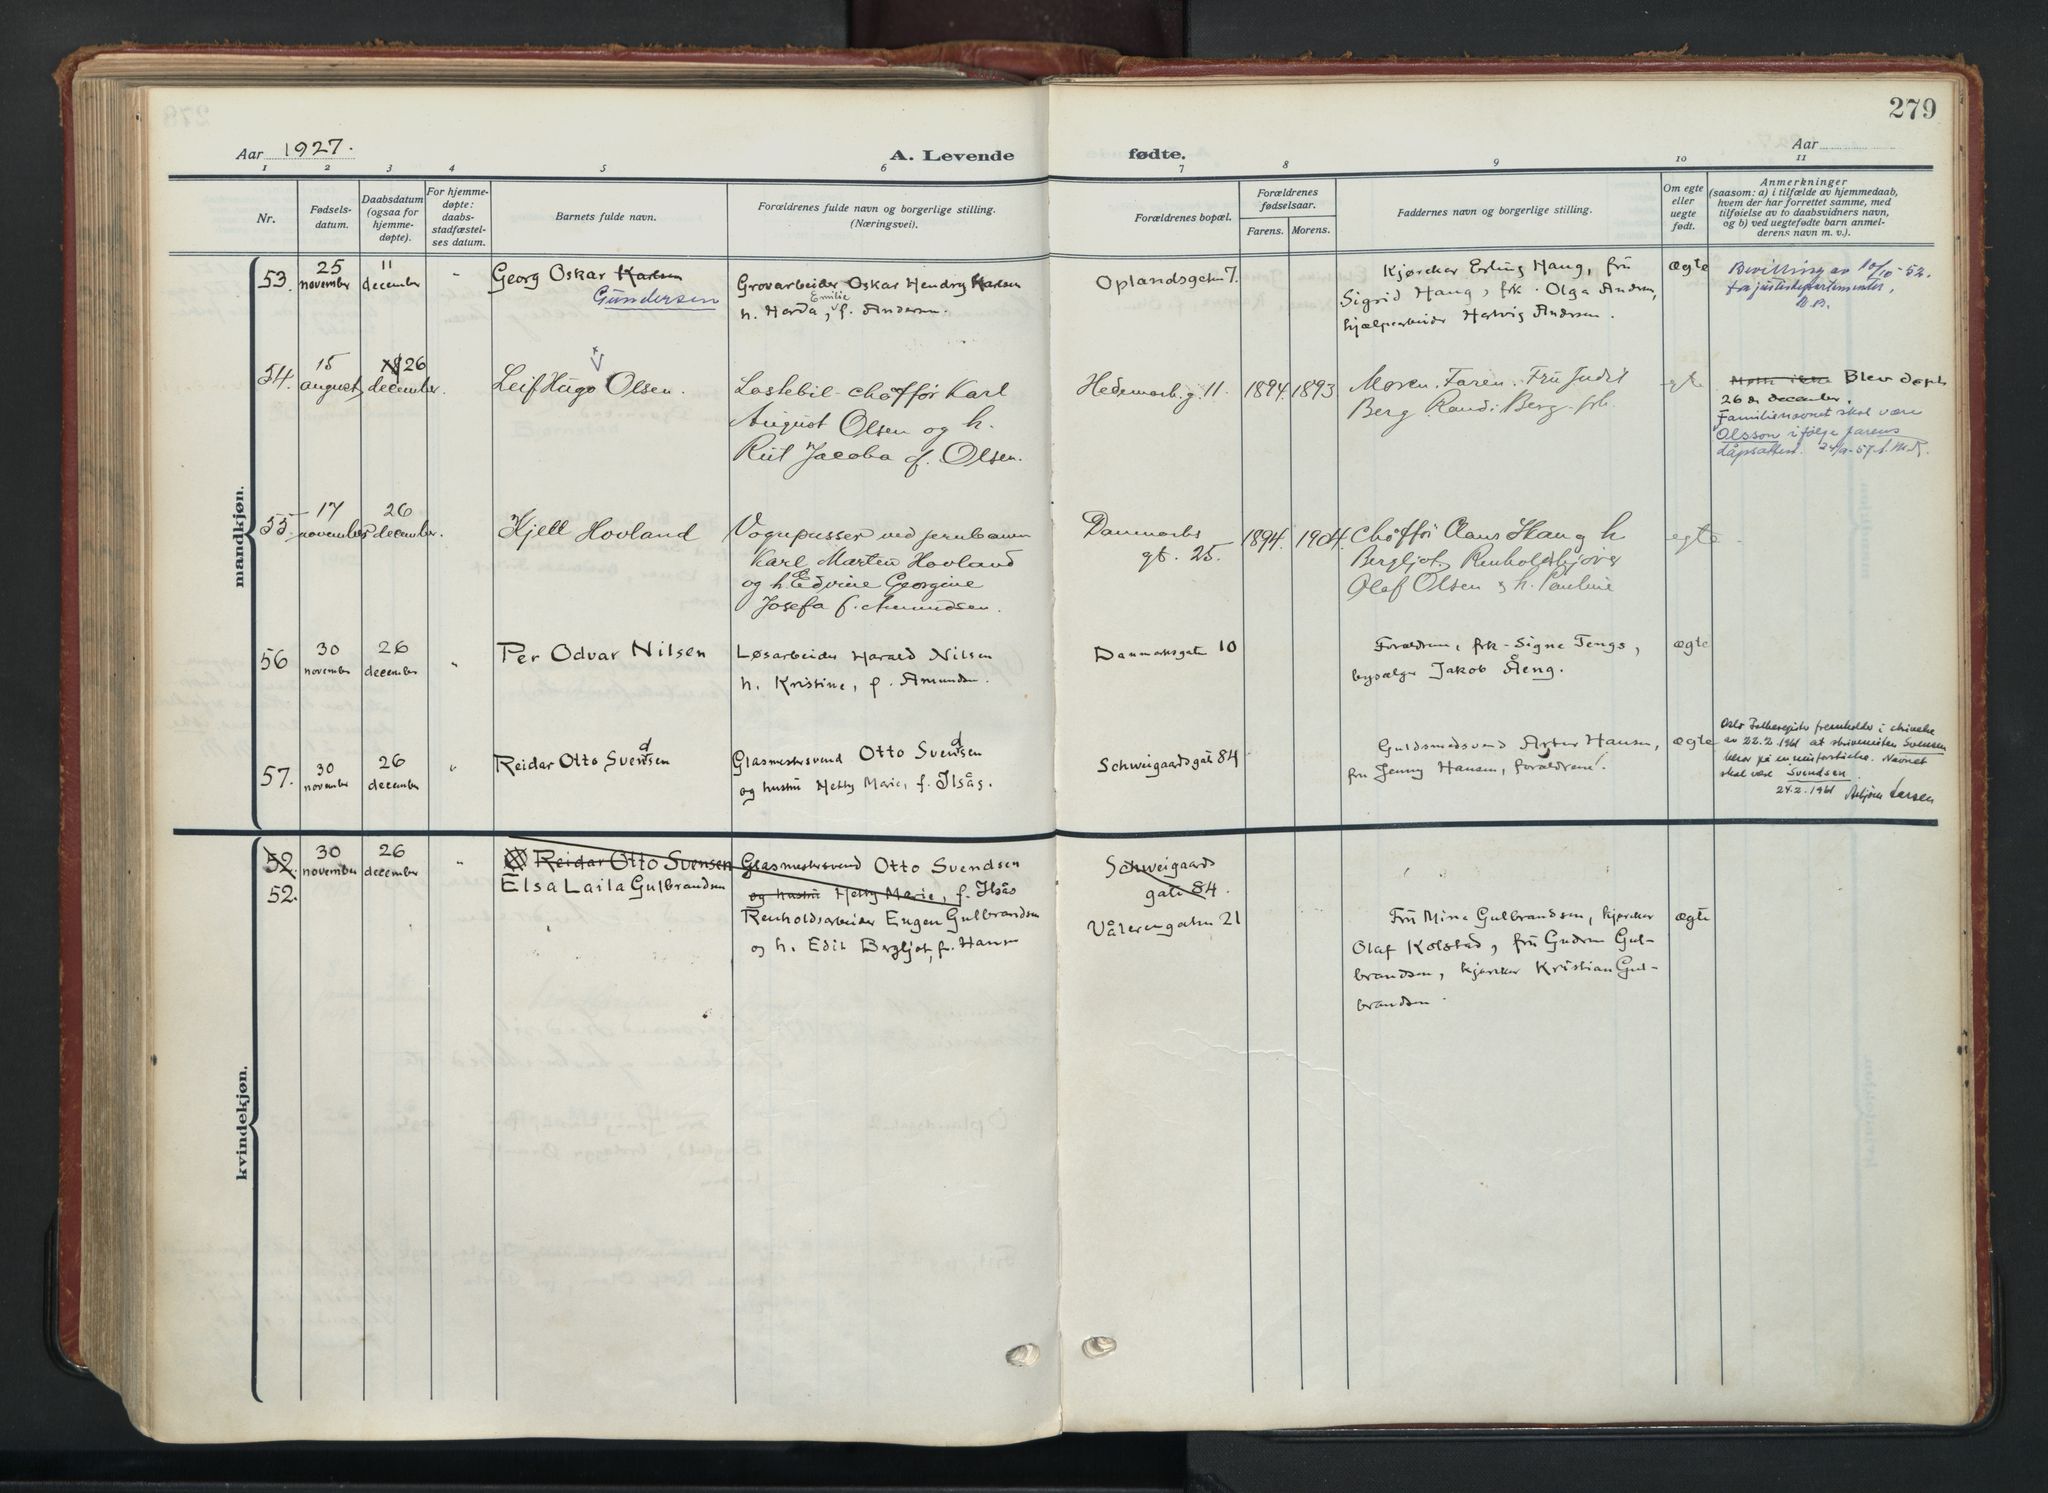 279
Aar 1927.
A. Levende
fødte.
Aar
1 2 3 4 5 6 7 8 9 10 11
Nr.
Fødsels-
datum.
Daabsdatum
(ogsaa for
hjemme-
døpte).
For hjemme-
døpte:
daabs-
stadfæstel-
ses datum.
Barnets fulde navn.
Forældrenes fulde navn og borgerlige stilling.
(Næringsvei).
Forældrenes bopæl.
Forældrenes
fødselsaar.
Farens. Morens.
Faddernes navn og borgerlige stilling.
Om egte
eller
uegte
født.
Anmerkninger
(saasom: a) i tilfælde av hjemmedaab,
hvem der har forrettet samme, med
tilføielse av to daabsvidners navn,
og b) ved uegtefødte barn anmel-
derens navn m. v.).
mandkjøn.
53.
25
november
11
december
"
Georg Oskar Karlsen
Gundersen
Grovarbeider Oskar Hendry Karlsen
h. Horda Emilie, f. Andersen.
Oplandsgaten 7.
Kjørekar Erling Haug, fru
Sigrid Haug, frk. Olga Andersen,
hjælpearbeider Hartvig Andersen.
ægte
Bevilling av 10/10-52.
fra justisdepartementet,
54.
15
august
26
december.
Leif Hugo Olsen.
Lastebil-chøffør Karl
August Olsen og h.
Rut Jacoba f. Olsen.
Hedemark.g. 11.
1894.
1893.
Moren. Faren. Fru Judit
Berg. Randi Berg frk.
egte
Møtte ikke Blev døpt
26 de december.
Familienavnet skal være
Olsson i følge farens
dåpsattest.
55.
17
november
26
december.
Kjell Hovland
Vognpusser ved jernbanen
Karl Martin Hovland
og h. Edvine Georgine
Josefa f. Amundsen.
Danmarks
gt. 25.
1894.
1904.
Chøffør Claus Skaug h
Bergljot. Renholdskjører
Olaf Olsen & h. Pauline
egte
56
30
november
26
december
"
Per Odvar Nilsen
Løsarbeider Harald Nilsen
h. Kristine, f. Amundsen.
Danmarksgaten 10
Forældrene, frk. Signe Tengs,
bysælger Jakob Åeng.
ægte
57.
30
november
26
december
"
Reidar Otto Svendsen
Glasmestersvend Otto Svendsen
og hustru Hetty Marie, f. Ilsås.
Schweigaardsgate 84
Guldsmedsvend Artur Hansen,
fru Jenny Hansen, forældrene.
ægte
Oslo Folkeregister fremholder i skrivelse
av 22.2.1961 at skrivemåten Svensen
beror på en misforståelse. Navnet
skal være Svendsen
24.2.1961 Asbjørn Larsen
kvindekjøn.
52.
52.
30
november
26
december
"
Reidar Otto Svensen
Elsa Laila Gulbrandsen
Glasmestersvend Otto Svendsen
og hustru Hetty Marie, f. Ilsås
Renholdsarbeider Eugen Gulbrandsen
og h. Edit Bergljot, f. Hansen
Schweigaards
gate 84.
Vålerengaten 21
Fru Mina Gulbrandsen, kjørekar
Olaf Kolstad, fru Gudrun Gul-
brandsen, kjørekar Kristian Gul-
brandsen.
ægte